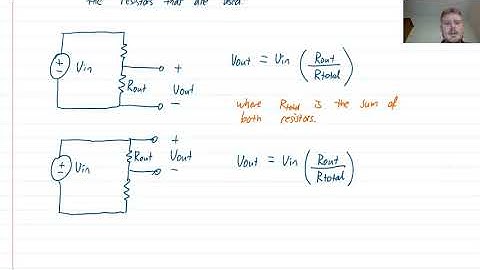 the resistors that are used
Vin
+
Rout Vout
-
Vout = Vin (Rout/Rtotal)
where Rtotal is the sum of
both resistors.
Vin
+
Rout Vout
-
Vout = Vin (Rout/Rtotal)